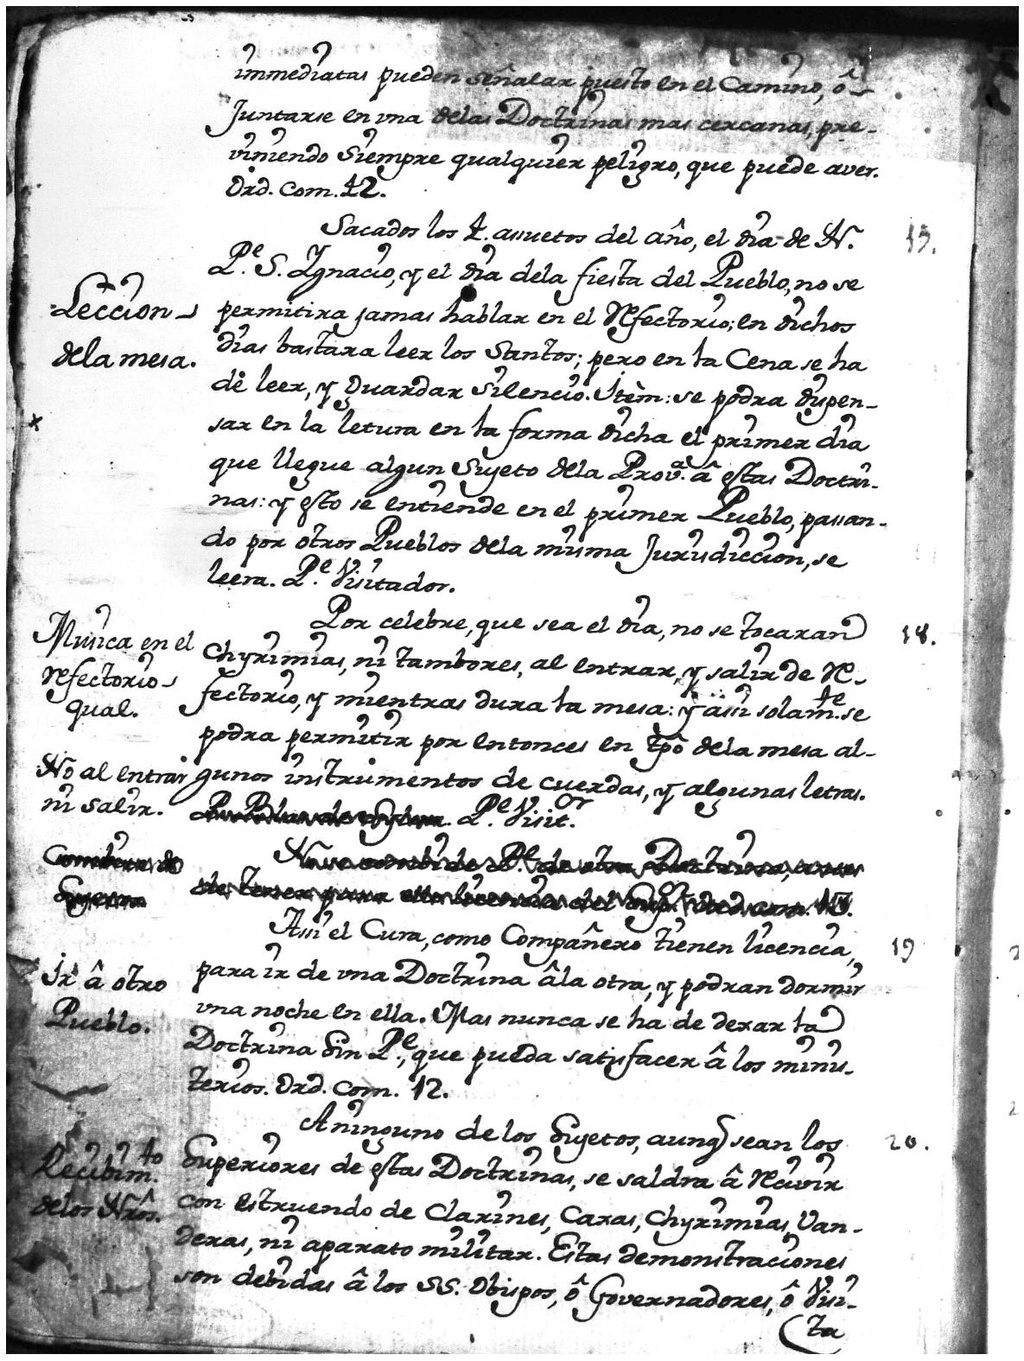 immediatas pueden señalar puesto en el Camino, ô
Juntarse en vna delas Doctrinas mas cercanas, pre-
viniendo Siempre qualquier peligro, que puede aver.
Ord. Com. 12.
Sacados los 4. assuetos del año, el dia de N.
P.e S. Ygnacio, y el dia dela fiesta del Pueblo, no se
permitira jamas hablar en el Refectorio; en dichos
dias bastara leer los Santos; pero en la Cena se ha
de leer, y Guardar Silencio. Item: se podra dispen-
sar en la letura en la forma dicha el primer dia
que llegue algun Sujeto dela Prov.a â estas Doctri-
nas: y esto se entiende en el primer Pueblo, passan-
do por otros Pueblos dela misma Jurisdiccion, se
leera. P.e Visitador.
15.
Leccion
dela mesa.
x
Por celebre, que sea el dia, no se tocaran
Chyrimias, ni tambores, al entrar, y salir de Re-
fectorio, y mientras dura la mesa: y assi solam.te se
podra permitir por entonces en tpô dela mesa al-
gunos instrumentos de cuerdas, y algunas letras.
P.e Visit.or
18.
Musica en el
Refectorio
qual.
No al entrar
ni salir.
Assi el Cura, como Compañero tienen licencia,
para ir de vna Doctrina âla otra, y podran dormir
vna noche en ella. Mas nunca se ha de dexar la
Doctrina Sin P.e, que pueda satisfacer â los minis-
terios. Ord. Com. 12.
19
Ir â otro
Pueblo.
A ninguno de los Sujetos, aunq sean los
Superiores de estas Doctrinas, se saldra â Recivir
con estruendo de Clarines, Caxas, Chyrimias, Van-
deras, ni aparato militar. Estas demonstraciones
son debidas â los SS. Obispos, ô Governadores, ô Visi-
ta
20.
Recibim.to
delos Nrôs.